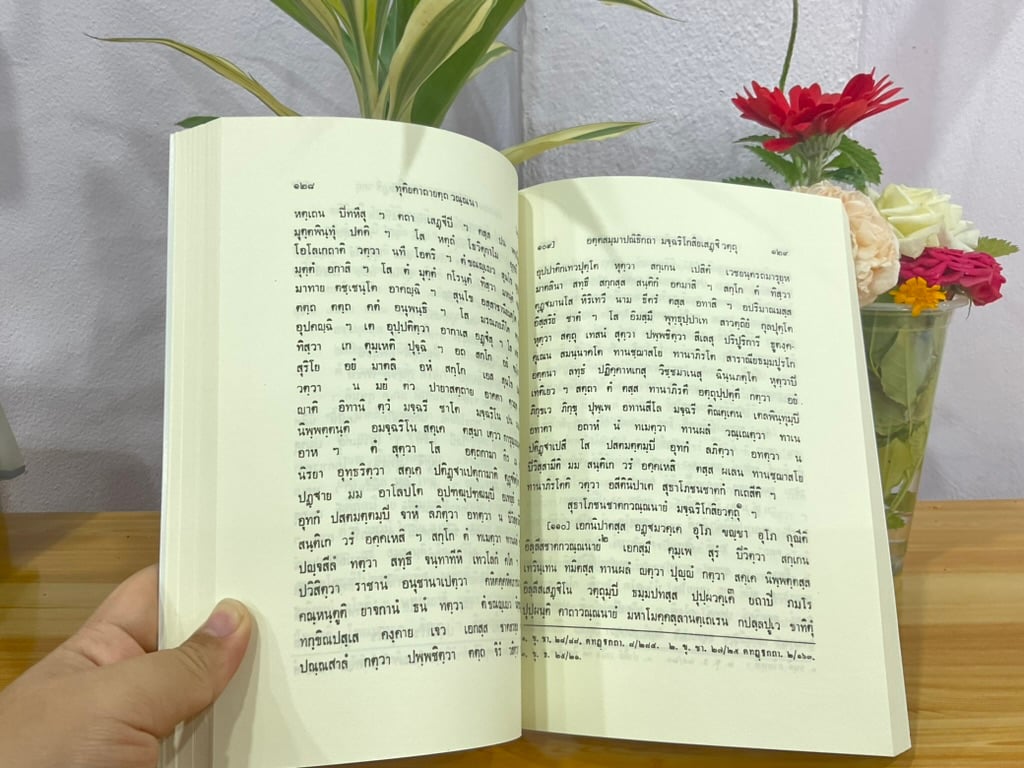 ๑๒๘ ทุติยคาถายตฺถ วณฺณนา
หตฺเถน ปีทหึสุ ฯ ตถา เสฏฺฐีปี ฯ ตสฺส ปน
มุตฺตพินฺทุํ ปตติ ฯ โส หตฺถํ โธวิตุกาโม
โอโลเกถาติ วตฺวา นที โอตริ ฯ ตํขณญฺเญว
มุตฺตํ อกาสิ ฯ โส ตํ มุตฺตํ กโรนฺตํ ทิสฺวา
มาทาย คชฺเชนฺโต อาคญฺฉิ ฯ สุนโข
ตตฺถ ตตฺถ ตตํ อนุพนฺธิ ฯ โส
อุปคญฺฉิ ฯ เต อุปฺปติตฺวา อากาเส อฏฺฐํสุ ฯ
ทิสฺวา เก ตุมฺเหติ ปุจฺฉิ ฯ อถ สกฺโก
สุริโย อยํ มาตลิ อหํ สกฺโก เอส
วตฺวา น มยํ ตว ปายาสตฺถาย อาคตา
ญาติ อิทานิ ตฺวํ มจฺฉรี ชาโต
นิพฺพตฺตนฺติ อมจฺฉริโน สคฺเค ตสฺมา
อาห ฯ ตํ สุตฺวา โส
นิรยา อุทฺธริตฺวา สคฺเค ปติฏฺฐาเปตุกามาติ
ปฏฺฐาย มม อาโลปโต อุปฑฺฒุปฑฺฒมฺปิ
อุทกํ ปสตมตฺตมฺปิ จาหํ ลภิตฺวา อทตฺวา น
สนฺติเก วรํ อคฺคเหสิ ฯ สกฺโก ตํ ทเมตฺวา
ปญฺจสีลํ ทตฺวา สทฺธึ จนฺทาทีหิ เทวโลกํ
ปวิสิตฺวา ราชานํ อนุชานาเปตฺวา
คณฺหนฺตูติ ยาจกานํ ธนํ ทตฺวา ตํขณญฺเญว
ทกฺขิณปสฺเส คงฺคาย เจว เอกสฺส
ปณฺณสาลํ กตฺวา ปพฺพชิตฺวา ตตฺถ จิรํ
๑๐๙] อตฺตสมฺมาปณิธิกถา มจฺฉริโกสิยเสฏฺฐิวตฺถุ ๑๒๙
อุปฺปาติกเทวปุตฺโต หุตฺวา สกฺเกน เปสิตํ เวชยนฺตรถมารุยฺห
มาตลินา สทฺธึ สกฺกสฺส สนฺติกํ อคมาสิ ฯ สกฺโก ตํ ทิสฺวา
ตุฏฺฐมานโส หิริเทวึ นาม ธีตรํ ตสฺส อทาสิ ฯ อปริมาณมสฺส
อิสฺสริยํ ชาตํ ฯ โส อิมสฺมึ พุทฺธุปฺปาเท สาวตฺถิยํ กุลปุตฺโต
หุตฺวา สตฺถุ เทสนํ สุตฺวา ปพฺพชิตฺวา สีเลสุ ปริปูริการี ธูตงฺค-
คุเณน สมนฺนาคโต ทานชฺฌาสโย ทานาภิรโต สาราณียธมฺมปูรโก
อตฺตนา ลทฺธํ ปฏิคฺคาหเกสุ วิชฺชมาเนสุ ฉินฺนภตฺโต หุตฺวาปิ
เทติเยว ฯ สตฺถา ตํ ตสฺส ทานาภิรตึ อตฺถุปฺปตฺตึ กตฺวา อยํ
ภิกฺขเว ภิกฺขุ ปุพฺเพ อทานสีโล มจฺฉรี ติณคฺเคน เตลพินฺทุมฺปิ
อทาตา อถาหํ นํ ทเมตฺวา ทานผลํ วณฺเณตฺวา ทาเน
ปติฏฺฐาเปสึ โส ปสตมตฺตมฺปิ อุทกํ ลภิตฺวา อทตฺวา น
ปิวิสฺสามีติ มม สนฺติเก วรํ อคฺคเหสิ ตสฺส ผเลน ทานชฺฌาสโย
ทานาภิรโตติ วตฺวา อสีตินิปาเต สุธาโภชนชาตกํ กเถสีติ ฯ
สุธาโภชนชาตกวณฺณนายํ มจฺฉริโกสิยวตฺถุ๑ ฯ
[๑๑๐] เอกนิปาตสฺส อฏฺฐมวคฺเค อุโภ ขญฺชา อุโภ กุณีติ
อิลฺลีสชาตกวณฺณนายํ๒ เอกสฺมึ กุมฺเภ สุรํ ปิวิตฺวา สกฺเกน
เทวินฺเทน ทมิตสฺส ทานผลํ ญตฺวา ปุญฺญํ กตฺวา สคฺเค นิพฺพตฺตสฺส
อิลฺลีสเสฏฺฐิโน วตฺถุมฺปิ ธมฺมปทสฺส ปุปฺผวคฺเค๓ ยถาปิ ภมโร
ปุปฺผนฺติ คาถาวณฺณนายํ มหาโมคฺคลฺลานตฺเถเรน กปลฺลปูเว ขาทิตุํ
๑. ขุ. ชา. ๒๘/๘๘. ตทฏฺฐกถา. ๘/๒๘๙. ๒. ขุ. ชา. ๒๗/๒๕ ตทฏฺฐกถา. ๒/๑๖๓.
๓. ขุ. ธ. ๒๕/๒๑.